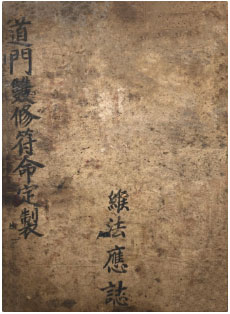 道門修符命定製
緱法應誌